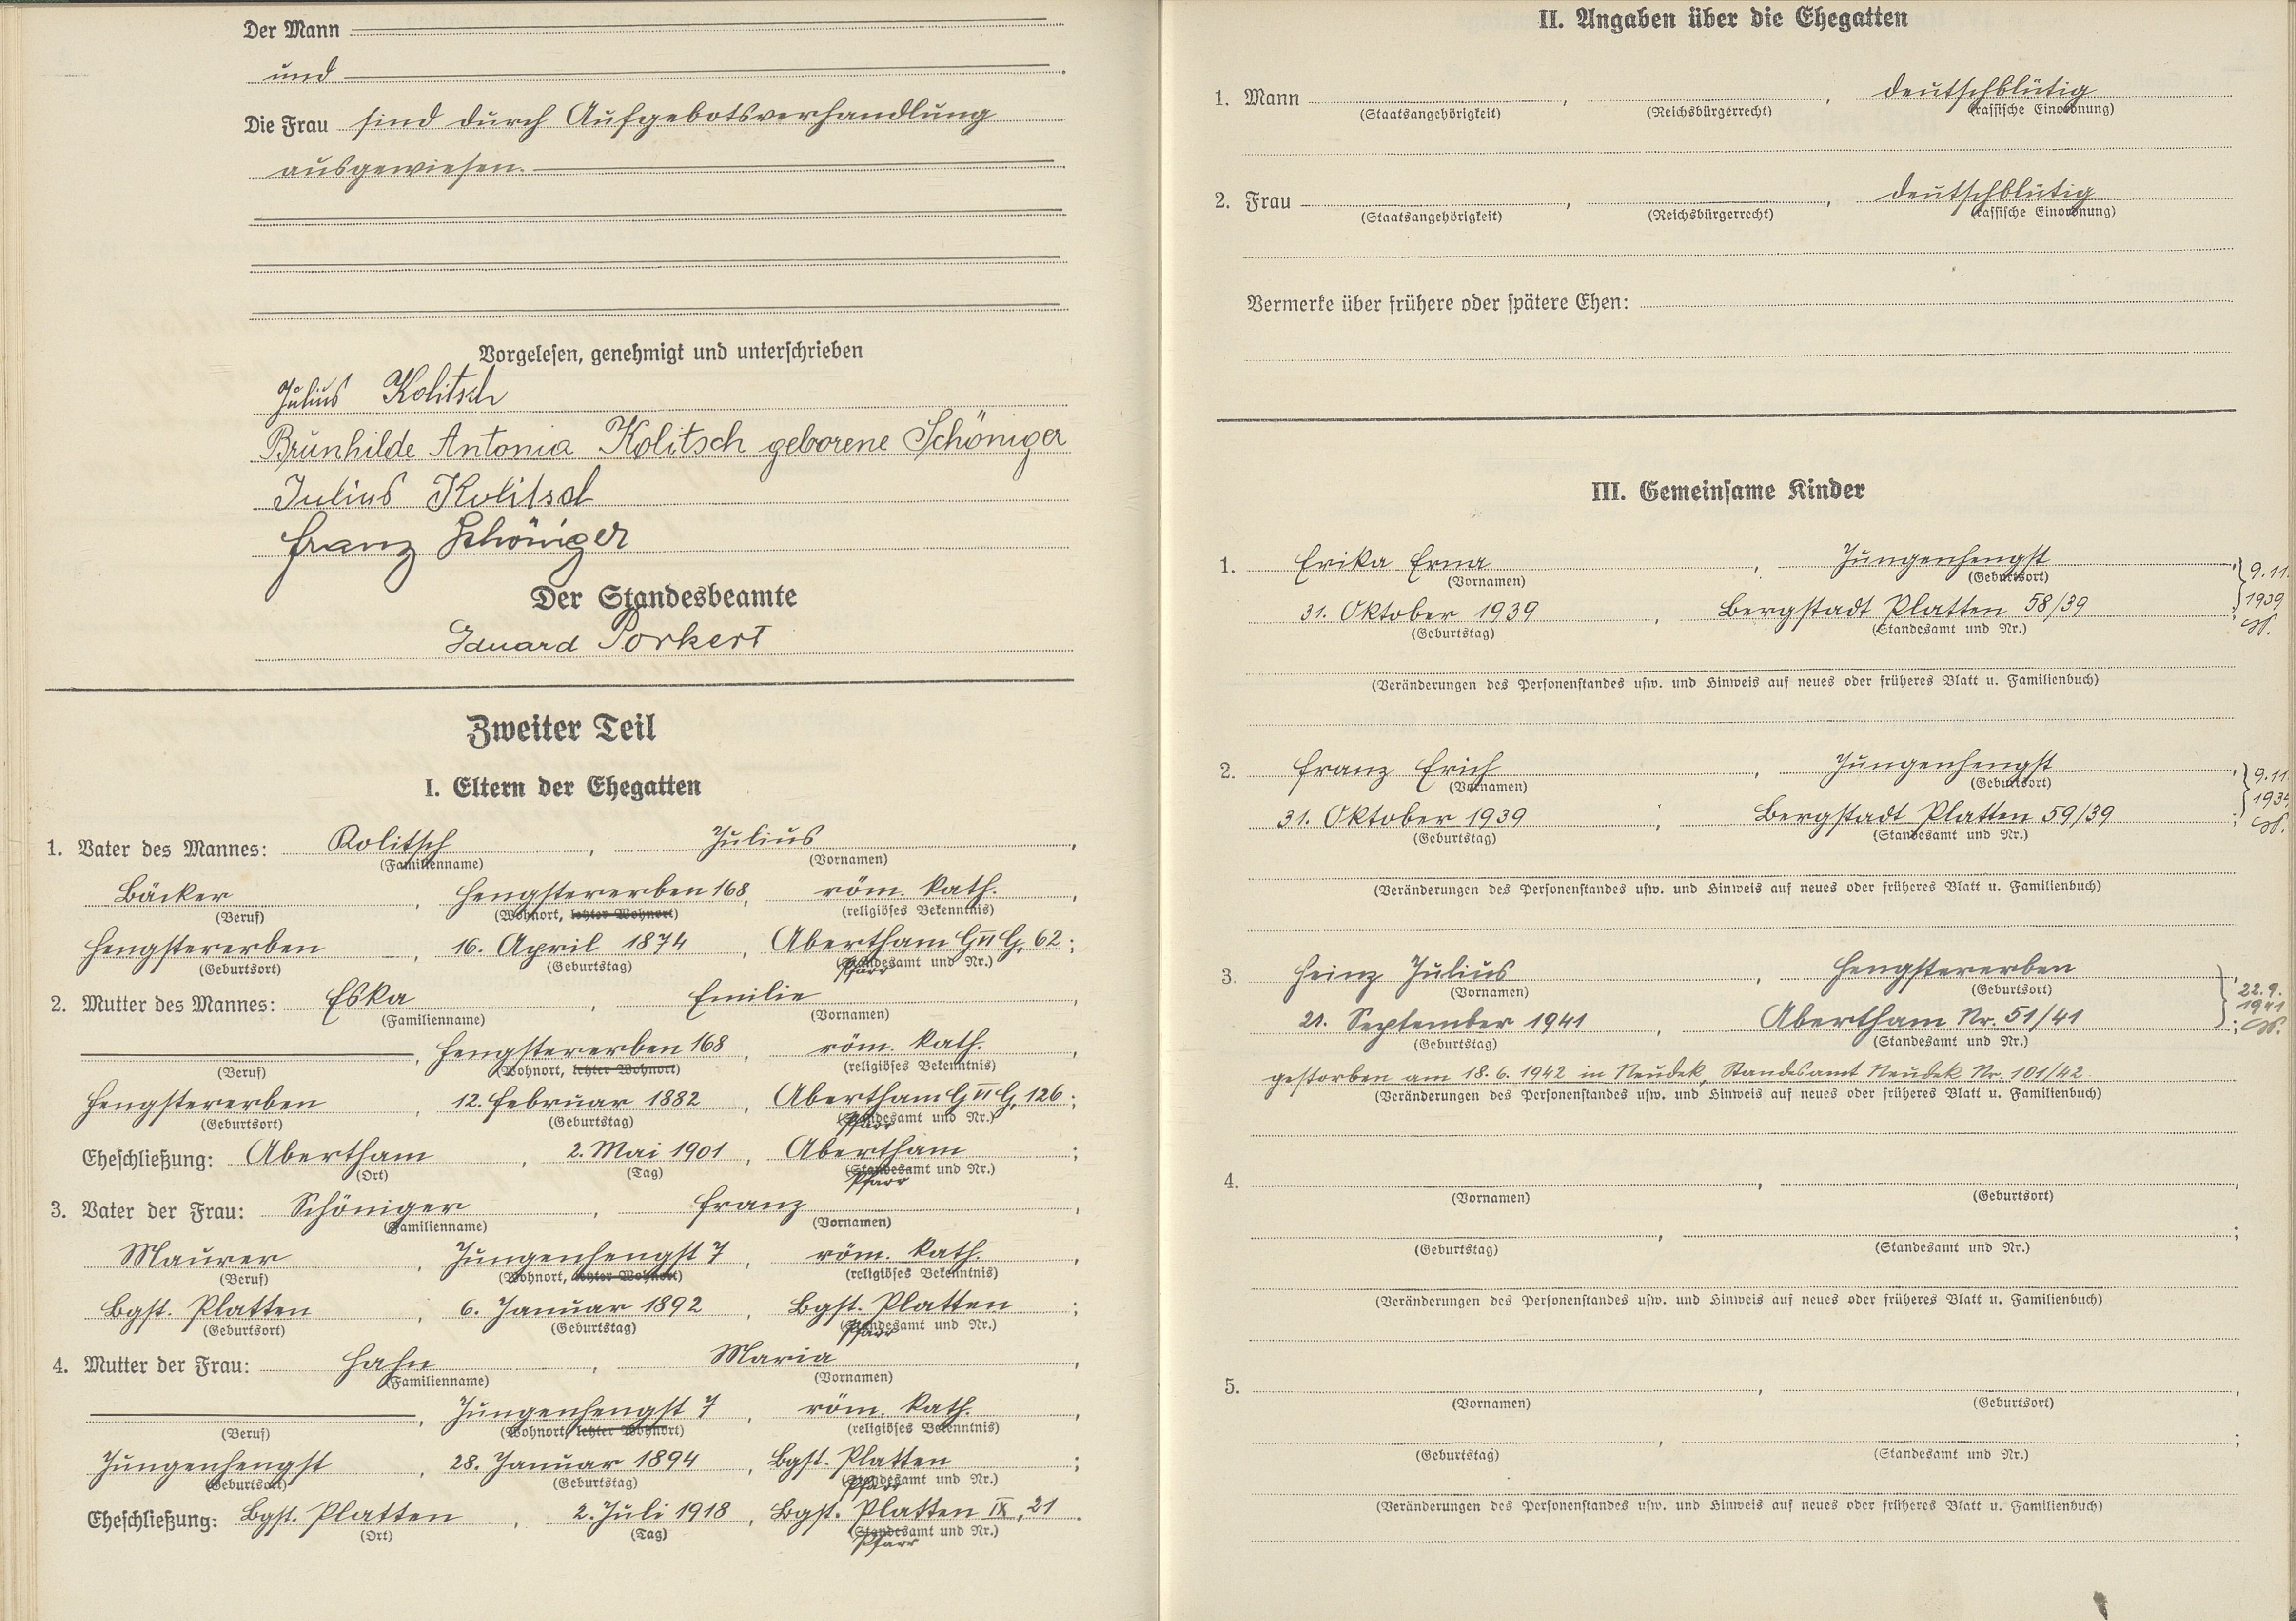 Der Mann
und
Die Frau sind durch Aufgebotsverhandlung
ausgewiesen.
Vorgelesen, genehmigt und unterschrieben
Julius Kolitsch
Brunhilde Antonia Kolitsch geborene Schöniger
Julius Kolitsch
Franz Schöniger
Der Standesbeamte
Eduard Porkert
Zweiter Teil
I. Eltern der Ehegatten
1. Vater des Mannes: Kolitsch, Julius,
(Familienname) (Vornamen)
Bäcker, Hengstererben 168, röm. kath.,
(Beruf) (Wohnort, letzter Wohnort) (religiöses Bekenntnis)
Hengstererben, 16. April 1874, Abertham 62;
(Geburtsort) (Geburtstag) (Standesamt und Nr.)
Pfarr
2. Mutter des Mannes: Eska, Emilie,
(Familienname) (Vornamen)
, Hengstererben 168, röm. kath.,
(Beruf) (Wohnort, letzter Wohnort) (religiöses Bekenntnis)
Hengstererben, 12. Februar 1882, Abertham 126;
(Geburtsort) (Geburtstag) (Standesamt und Nr.)
Pfarr
Eheschließung: Abertham, 2. Mai 1901, Abertham;
(Ort) (Tag) (Standesamt und Nr.)
Pfarr
3. Vater der Frau: Schöniger, Franz,
(Familienname) (Vornamen)
Maurer, Jungenhengst 7, röm. kath.,
(Beruf) (Wohnort, letzter Wohnort) (religiöses Bekenntnis)
Bgst. Platten, 6. Januar 1892, Bgst. Platten;
(Geburtsort) (Geburtstag) (Standesamt und Nr.)
Pfarr
4. Mutter der Frau: Hahn, Maria,
(Familienname) (Vornamen)
, Jungenhengst 7, röm. kath.,
(Beruf) (Wohnort, letzter Wohnort) (religiöses Bekenntnis)
Jungenhengst, 28. Januar 1894, Bgst. Platten;
(Geburtsort) (Geburtstag) (Standesamt und Nr.)
Pfarr
Eheschließung: Bgst. Platten, 2. Juli 1918, Bgst. Platten IX, 21.
(Ort) (Tag) (Standesamt und Nr.)
Pfarr
II. Angaben über die Ehegatten
1. Mann , , deutschblütig
(Staatsangehörigkeit) (Reichsbürgerrecht) (rassische Einordnung)
2. Frau , , deutschblütig
(Staatsangehörigkeit) (Reichsbürgerrecht) (rassische Einordnung)
Vermerke über frühere oder spätere Ehen:
III. Gemeinsame Kinder
1. Erika Erna, Jungenhengst, 9.11.
(Vornamen) (Geburtsort)
31. Oktober 1939, Bergstadt Platten 58/39; 1939
(Geburtstag) (Standesamt und Nr.)
(Veränderungen des Personenstandes usw. und Hinweis auf neues oder früheres Blatt u. Familienbuch)
2. Franz Erich, Jungenhengst, 9.11.
(Vornamen) (Geburtsort)
31. Oktober 1939, Bergstadt Platten 59/39;
(Geburtstag) (Standesamt und Nr.)
(Veränderungen des Personenstandes usw. und Hinweis auf neues oder früheres Blatt u. Familienbuch)
3. Heinz Julius, Hengstererben, 22.9.
(Vornamen) (Geburtsort)
21. September 1941, Abertham Nr. 51/41; 1941
(Geburtstag) (Standesamt und Nr.)
gestorben am 18.6.1942 in Neudek, Standesamt Neudek Nr. 101/42.
(Veränderungen des Personenstandes usw. und Hinweis auf neues oder früheres Blatt u. Familienbuch)
4. , ,
(Vornamen) (Geburtsort)
, ;
(Geburtstag) (Standesamt und Nr.)
(Veränderungen des Personenstandes usw. und Hinweis auf neues oder früheres Blatt u. Familienbuch)
5. , ,
(Vornamen) (Geburtsort)
, ;
(Geburtstag) (Standesamt und Nr.)
(Veränderungen des Personenstandes usw. und Hinweis auf neues oder früheres Blatt u. Familienbuch)